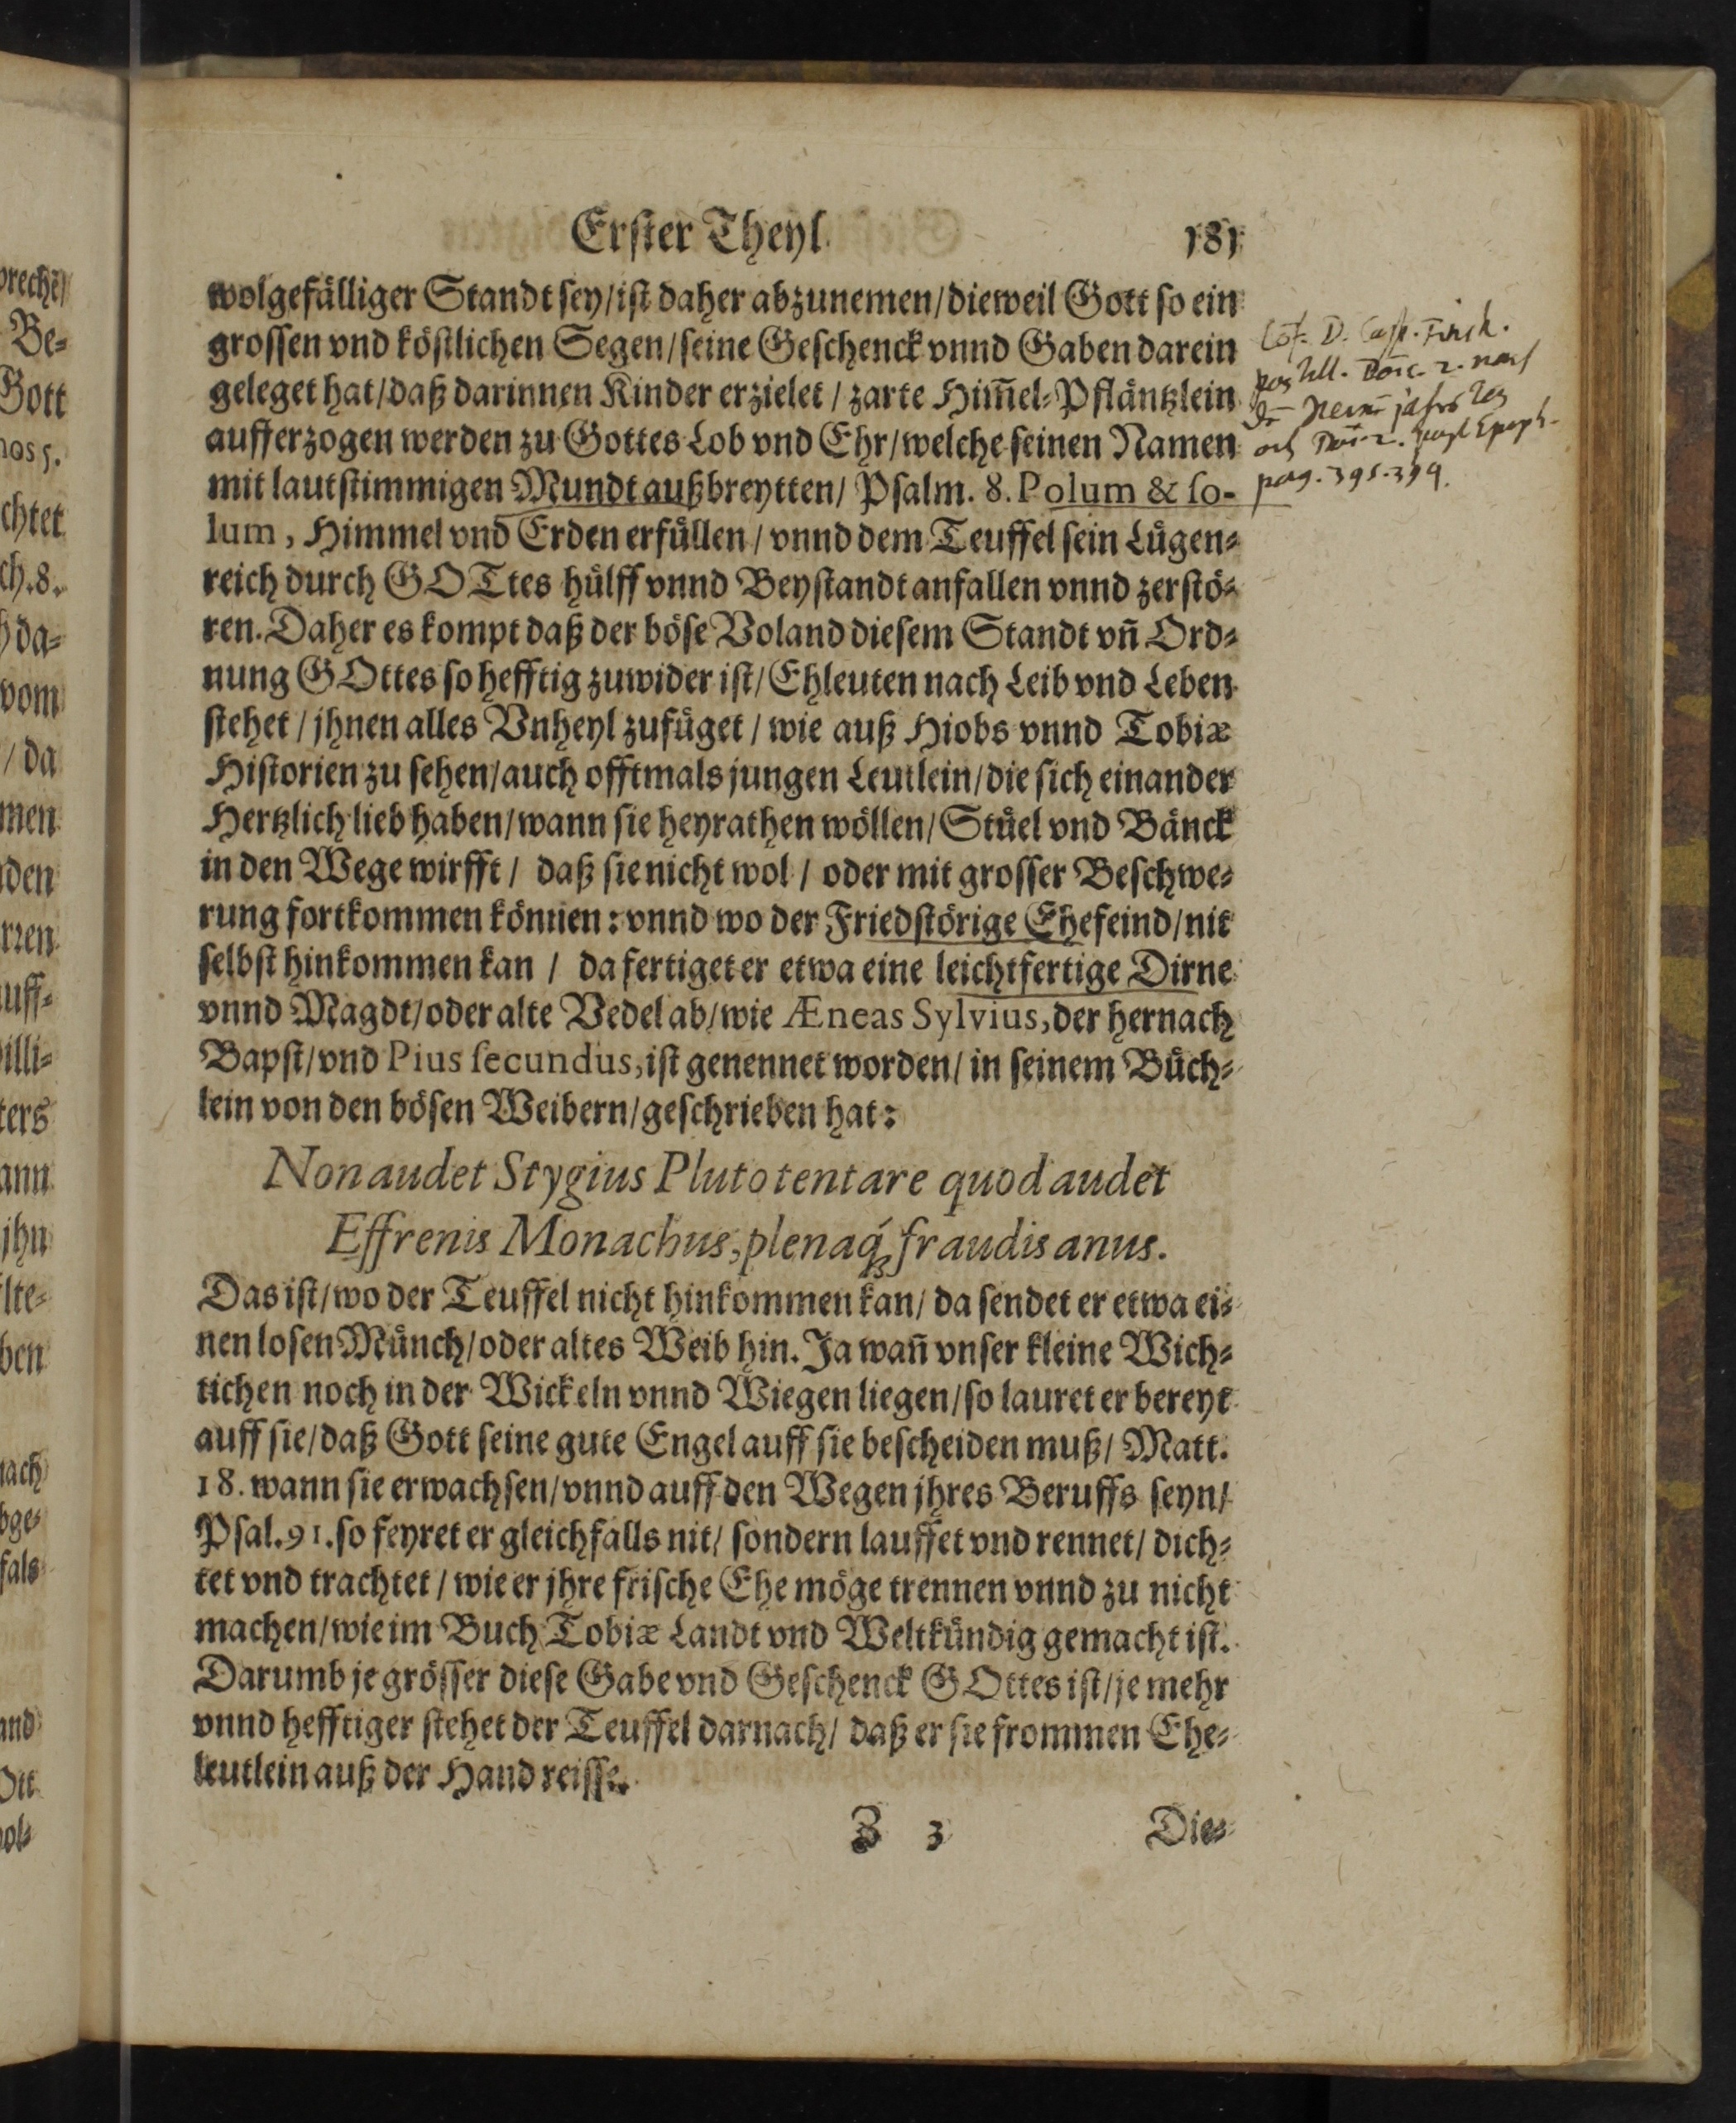 Erster Theyl 181
wolgefälliger Standt sey/ist daher abzunemen/dieweil Gott so ein
grossen vnd köstlichen Segen/seine Geschenck vnnd Gaben darein
geleget hat/daß darinnen Kinder erzielet/zarte Him̃el-Pfläntzlein
aufferzogen werden zu Gottes Lob vnd Ehr/welche seinen Namen
mit lautstimmigen Mundt außbreytten/ Psalm. 8. Polum & so-
lum, Himmel vnd Erden erfüllen/vnnd dem Teuffel sein Lügen-
reich durch GOTtes hülff vnnd Beystandt anfallen vnnd zerstö-
ren. Daher es kompt daß der böse Voland diesem Standt vñ Ord-
nung GOttes so hefftig zuwider ist/Ehleuten nach Leib vnd Leben
stehet/jhnen alles Vnheyl zufüget/wie auß Hiobs vnnd Tobiæ
Historien zu sehen/auch offtmals jungen Leutlein/die sich einander
Hertzlich lieb haben/wann sie heyrathen wöllen/Stüel vnd Bänck
in den Wege wirfft/ daß sie nicht wol/oder mit grosser Beschwe-
rung fortkommen können: vnnd wo der Friedstörige Ehefeind/nit
selbst hinkommen kan/ da fertiget er etwa eine leichtfertige Dirne
vnnd Magdt/oder alte Vedel ab/wie Æneas Sylvius, der hernach
Bapst/vnd Pius secundus, ist genennet worden/in seinem Büch-
lein von den bösen Weibern/geschrieben hat:
Non audet Stygius Pluto tentare quod audet
Effrenis Monachus, plenaq́; fraudis anus.
Das ist/wo der Teuffel nicht hinkommen kan/da sendet er etwa ei-
nen losen Münch/oder altes Weib hin. Ja wañ vnser kleine Wich-
tichen noch in der Wickeln vnnd Wiegen liegen/so lauret er bereyt
auff sie/daß Gott seine gute Engel auff sie bescheiden muß/ Matt.
18. wann sie erwachsen/vnnd auff den Wegen jhres Beruffs seyn/
Psal. 91. so feyret er gleichfalls nit/ sondern lauffet vnd rennet/ dich-
tet vnd trachtet/wie er jhre frische Ehe möge trennen vnnd zu nicht
machen/wie im Buch Tobiæ Landt vnd Weltkündig gemacht ist.
Darumb je grösser diese Gabe vnd Geschenck GOttes ist/je mehr
vnnd hefftiger stehet der Teuffel darnach/ daß er sie frommen Ehe-
leutlein auß der Hand reisse.
Z 3 Die-
D. Casp. Finck.
pag. 395. 399.